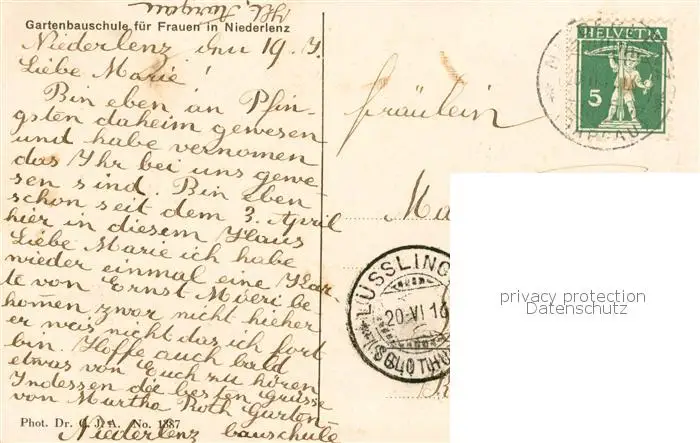 Kt. Aargau
Gartenbauschule für Frauen in Niederlenz
Niederlenz den 19.
Liebe Marie!
Bin eben an Pfin-
gsten daheim gewesen
und habe vernomen
das Ihr bei uns gewe-
sen sind. Bin eben
schon seit dem 3. April
hier in diesem Haus
Liebe Marie ich habe
wieder einmal eine Kar
te von Ernst be
komen zwar nicht hieher
er was nicht das ich fort
bin. Hoffe auch bald
etwas von Euch zu hören
Indessen die besten Grüsse
von Martha Roth Garten
Niederlenz bauschule
Phot. Dr. G. J. A. No. 1387
Fräulein
Ma
HELVETIA
5
AARGAU
LÜSSLING
20.VI.16
(SOLOTH
privacy protection
Datenschutz